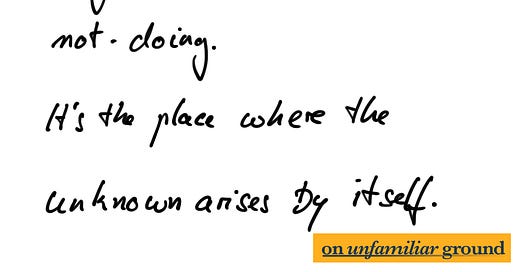 not-doing.
It's the place where the
unknown arises by itself.
on unfamiliar ground